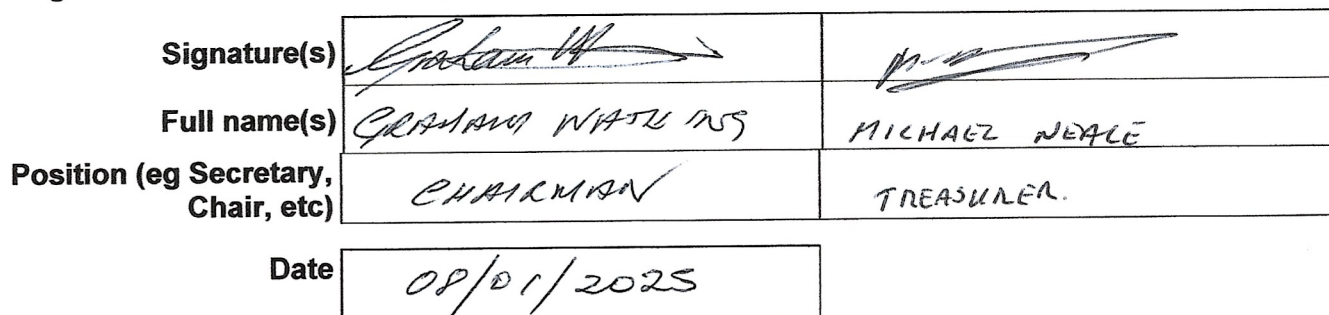 Signature(s) Graham W
Full name(s) GRAHAM WATKINS MICHAEL NEALE
Position (eg Secretary, Chair, etc) CHAIRMAN TREASURER.
Date 08/01/2025